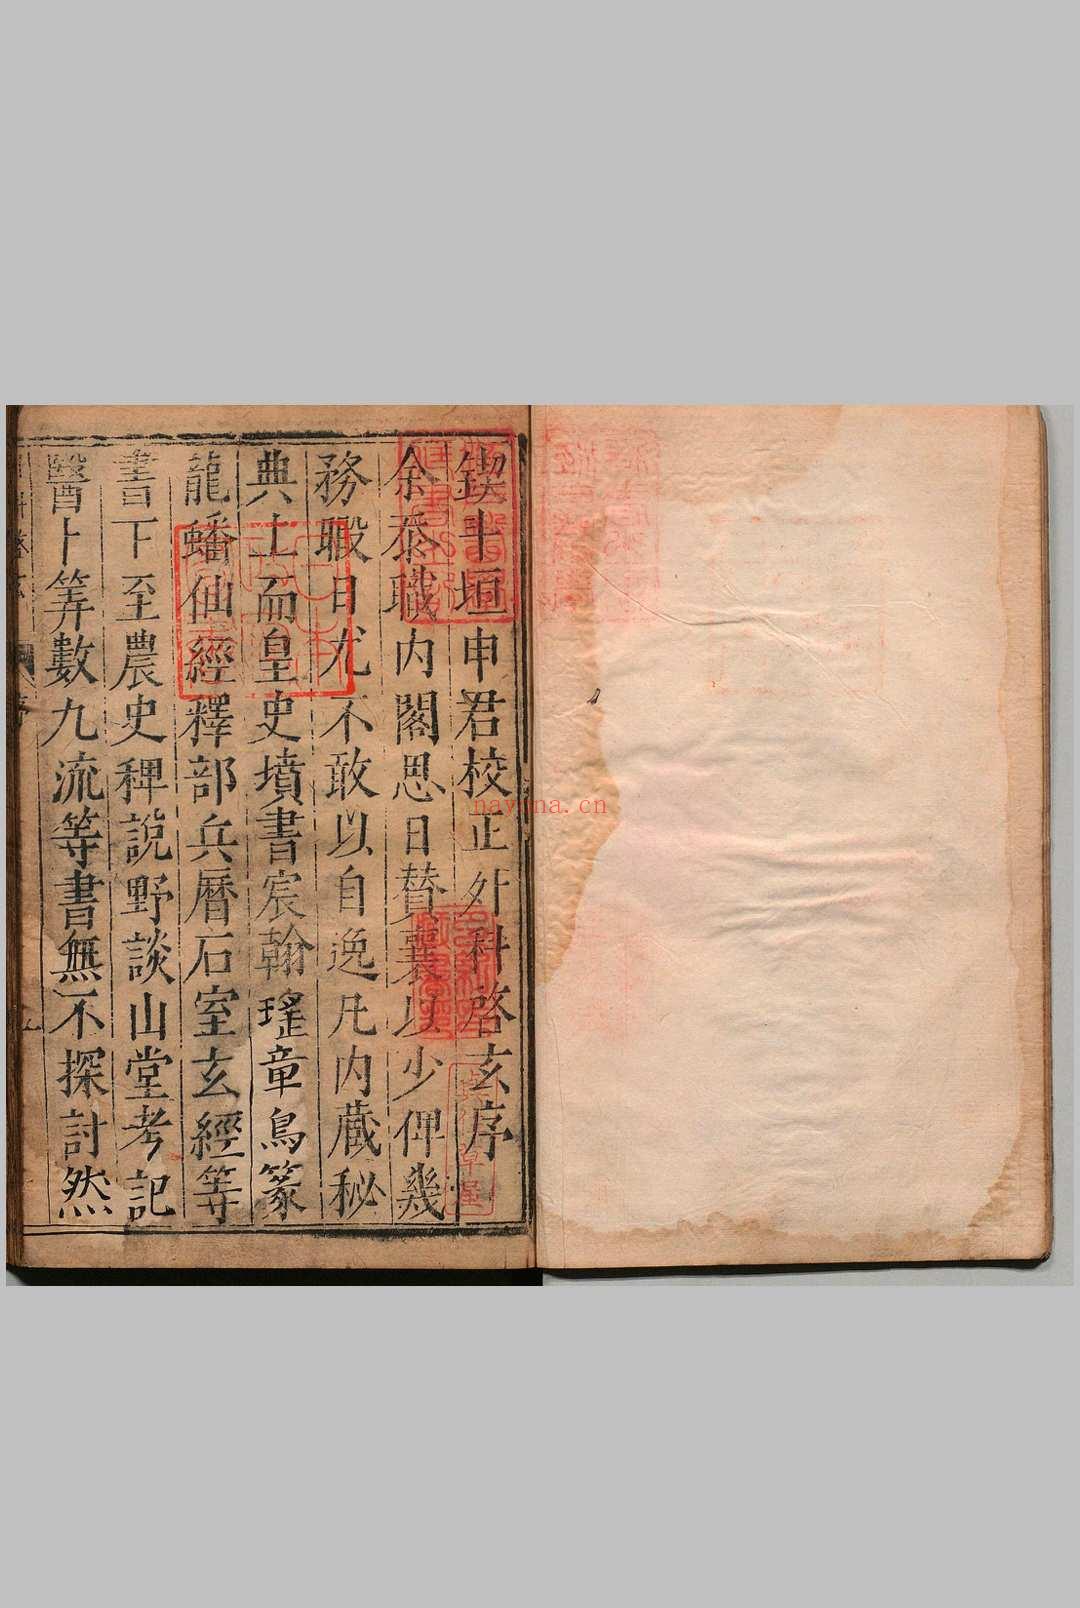 鍥斗垣申君校正外科啓玄序
余忝職內閣思日贊襄以少俾幾
務暇日尤不敢以自逸凡內蔵秘
典土而皇史墳書宸翰瑤章鳥篆
龍蟠仙經釋部兵曆石室玄經等
書下至農史稗說野談山堂考記
醫卜筭數九流等書無不探討然
nayona.cn